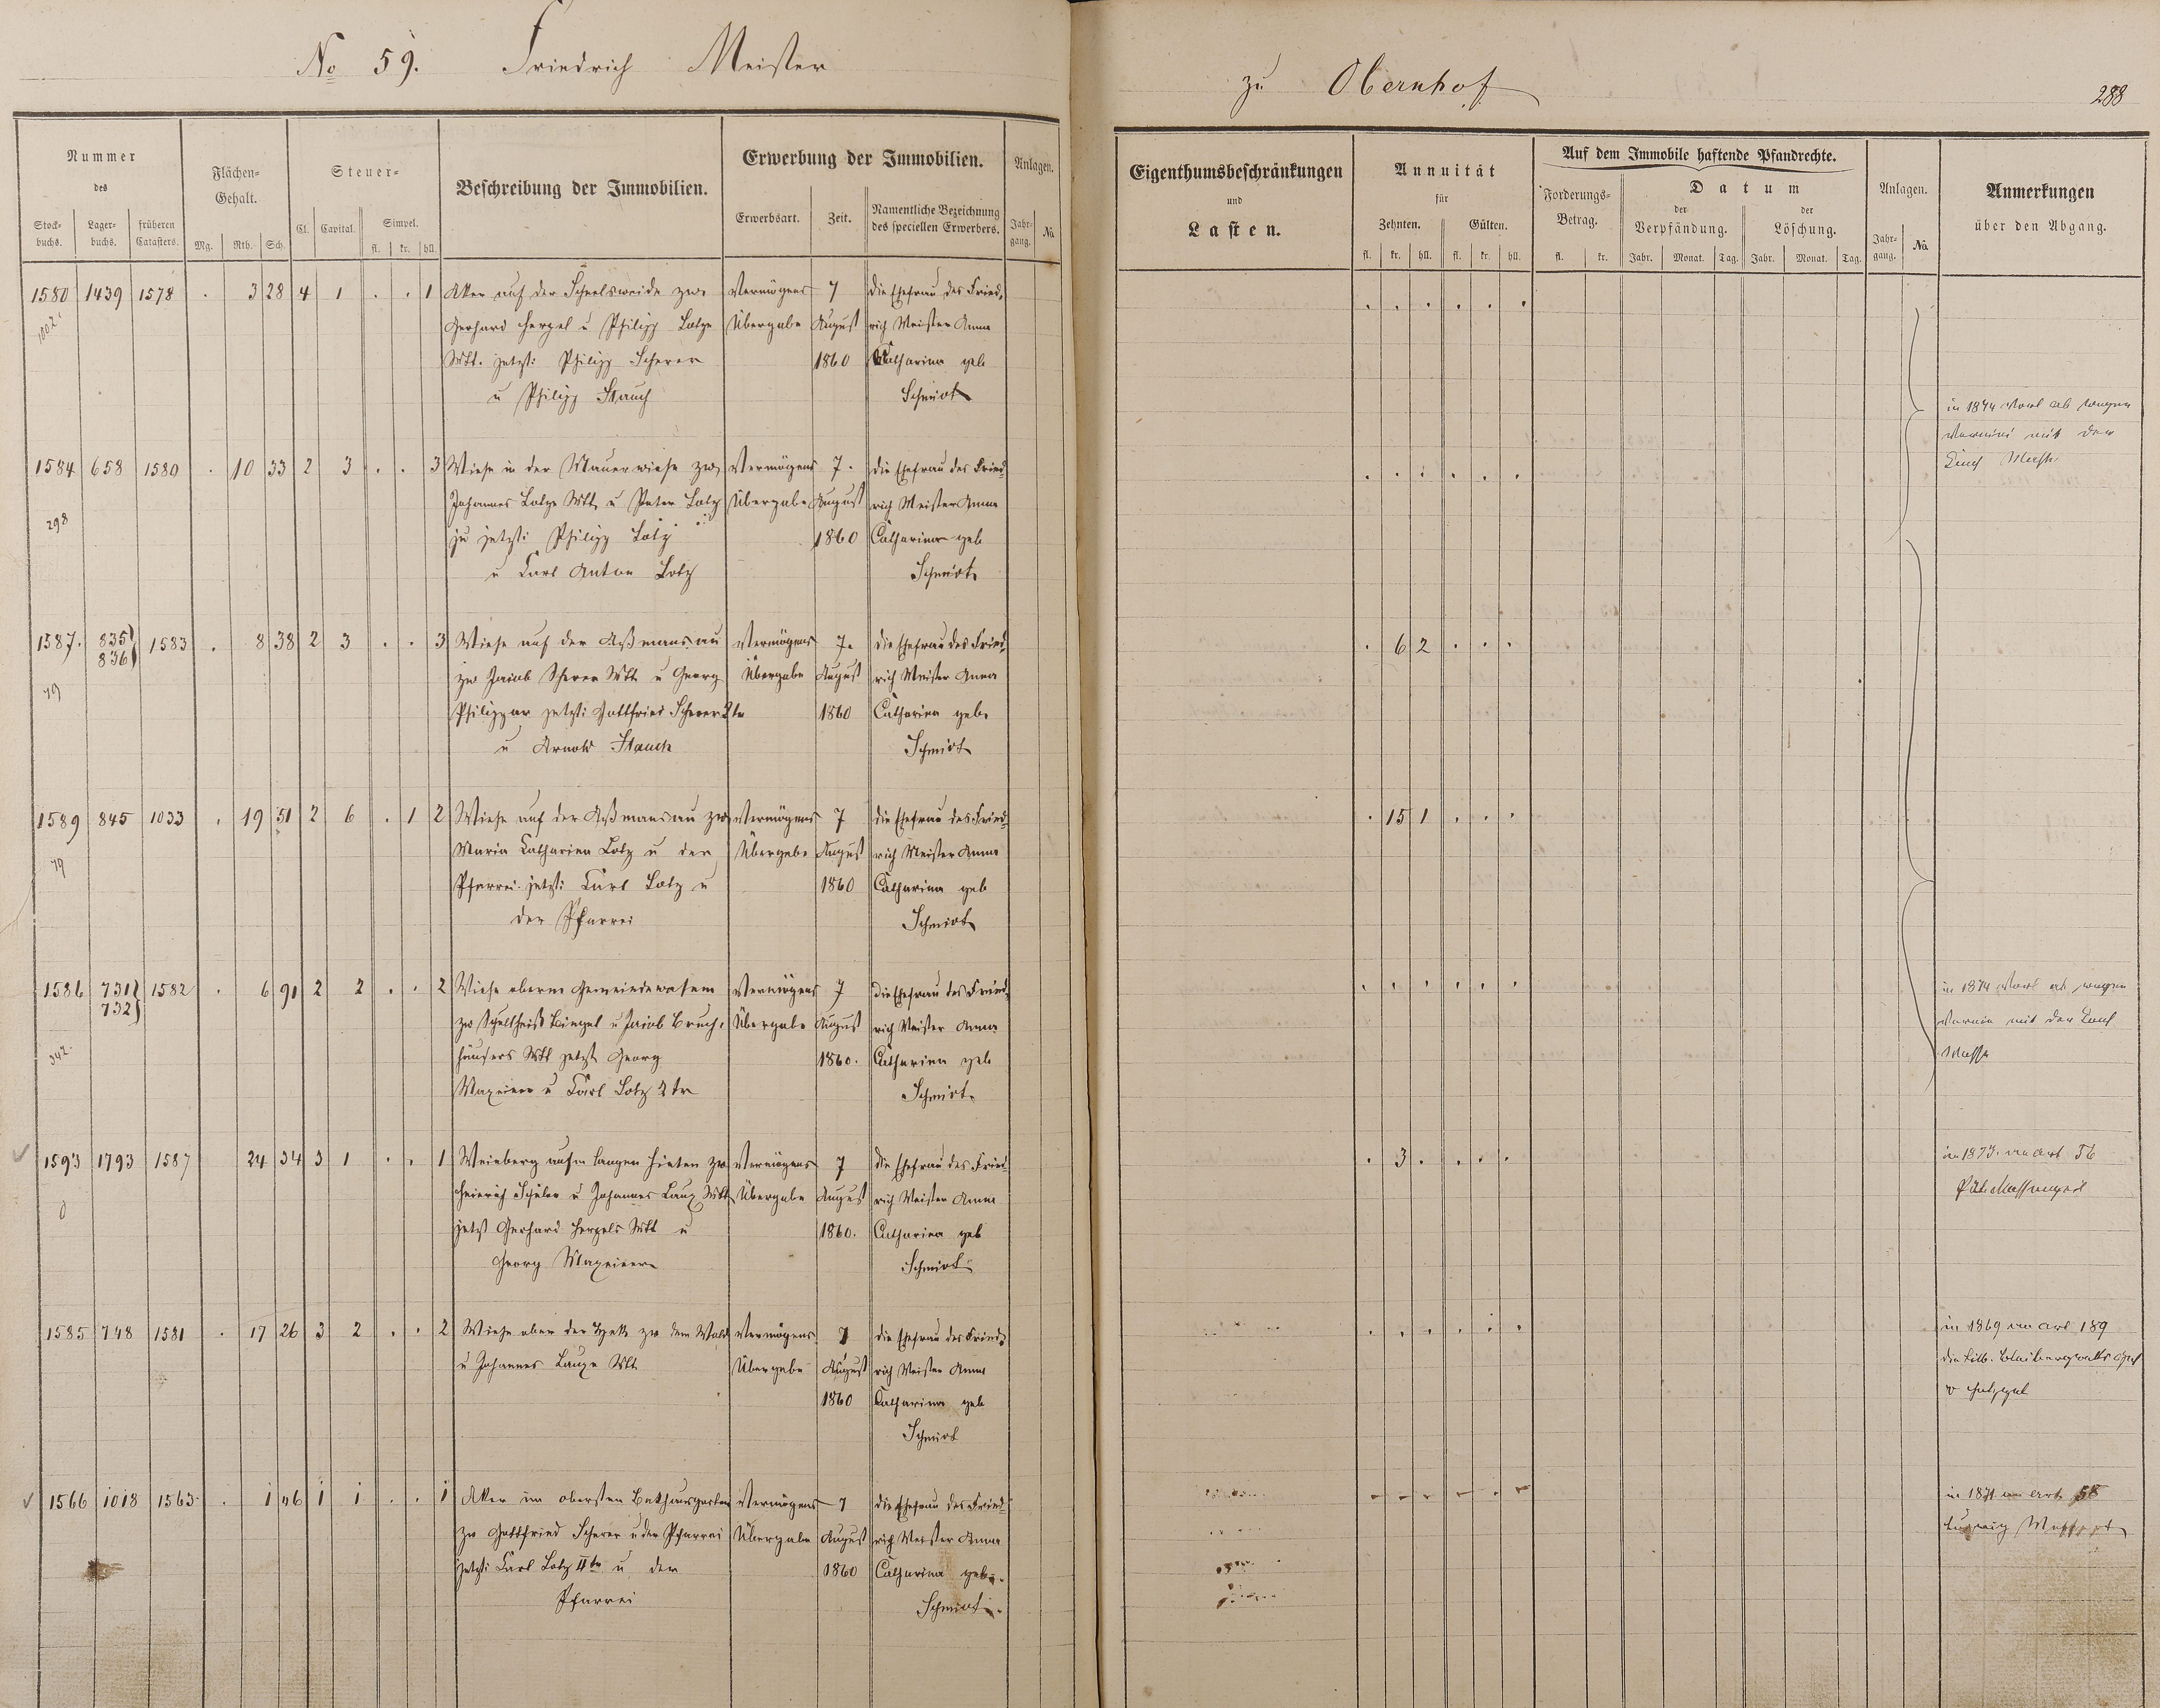 No 59. Friedrich Meister
zu Obernhof
288
Nummer
des
Stock-
buchs.
Lager-
buchs.
früheren
Catasters.
Flächen-
Gehalt.
Mg. Rth. Sch.
Steuer-
Cl. Capital. Simpel.
fl. kr. hll.
Beschreibung der Immobilien.
Erwerbung der Immobilien.
Erwerbsart. Zeit. Namentliche Bezeichnung
des speciellen Erwerbers.
Anlagen.
Jahr-
gang. No
Eigenthumsbeschränkungen
und
Lasten.
Annuität
für
Zehnten. Gülten.
fl. kr. hll. fl. kr. hll.
Auf dem Immobile haftende Pfandrechte.
Forderungs-
Betrag.
fl. kr.
Datum
der
Verpfändung.
der
Löschung.
Jahr. Monat. Tag. Jahr. Monat. Tag.
Anlagen.
Jahr-
gang. No
Anmerkungen
über den Abgang.
1580 1439 1578 . 3 28 4 1 . . 1 Aker auf der zw. Vermögens 7 die Ehefrau des Fried-
Gerhard Hergel u Philipp Lotze Übergabe August rich Meister Anna
Wtt. jetzt: Philipp Scherer 1860 Catharina geb
u Philipp Stauch Schmidt
in 1874 ab wegen
mit der
1584 658 1580 . 10 33 2 3 . . 3 Wiese in der Mauerwiese zw. Vermögens 7. die Ehefrau des Fried-
298
Johannes Lotze Wtt. u Peter Lotz Übergabe August rich Meister Anna
jetzt: Philipp Lotz 1860 Catharina geb
u Carl Anton Lotz Schmidt
1587. 835 1583 . 8 38 2 3 . . 3 Wiese auf der Aßmansau Vermögens 7. die Ehefrau des Fried-
836
zw Jacob Scherer Wtt u Georg Übergabe August rich Meister Anna
79
jetzt: Gottfried Scherer 2te 1860 Catharina geb.
u Arnold Stauch Schmidt
. 6 2 . . .
1589 845 1033 . 19 51 2 6 . 1 2 Wiese auf der Aßmansau zw. Vermögens 7 die Ehefrau des Fried-
79
Maria Catharina Lotz u der Übergabe August rich Meister Anna
Pfarrei jetzt: Carl Lotz u 1860 Catharina geb
der Pfarrei Schmidt
. 15 1 . . .
1586 731 1582 . 6 91 2 2 . . 2 Wiese oberm Gemeindewasem Vermögens 7 die Ehefrau des Fried-
732
zw Schultheiß Bingel u Jacob Bruch- Übergabe August rich Meister Anna
342.
häusers Wtt jetzt Georg 1860. Catharina geb
Maxeiner u Carl Lotz 2te Schmidt.
in 1874 ab wegen
mit der
Masse
1593 1793 1587 24 34 3 1 . . 1 Weinberg aufm langen zw. Vermögens 7 die Ehefrau des Fried-
0
Heinrich Schuler u Johannes Laux Wtt Übergabe August rich Meister Anna
jetzt Gerhard Hergels Wtt u 1860. Catharina geb
Georg Maxeiner Schmidt
. 3 . . . .
in 1873. an Art 56
1585 748 1581 . 17 26 3 2 . . 2 Wiese ober der zw dem Wald Vermögens 7 die Ehefrau des Fried-
u Johannes Laux Wtt Übergabe August rich Meister Anna
1860 Catharina geb
Schmidt
in 1869 an Art 189
1566 1018 1563. . 1 46 1 1 . . 1 Aker im obersten Bakhausgarten Vermögens 7 die Ehefrau des Fried-
zw Gottfried Scherer u der Pfarrei Übergabe August rich Meister Anna
jetzt: Carl Lotz IIte u der 1860 Catharina geb.
Pfarrei Schmidt.
in 1871 an Art 58